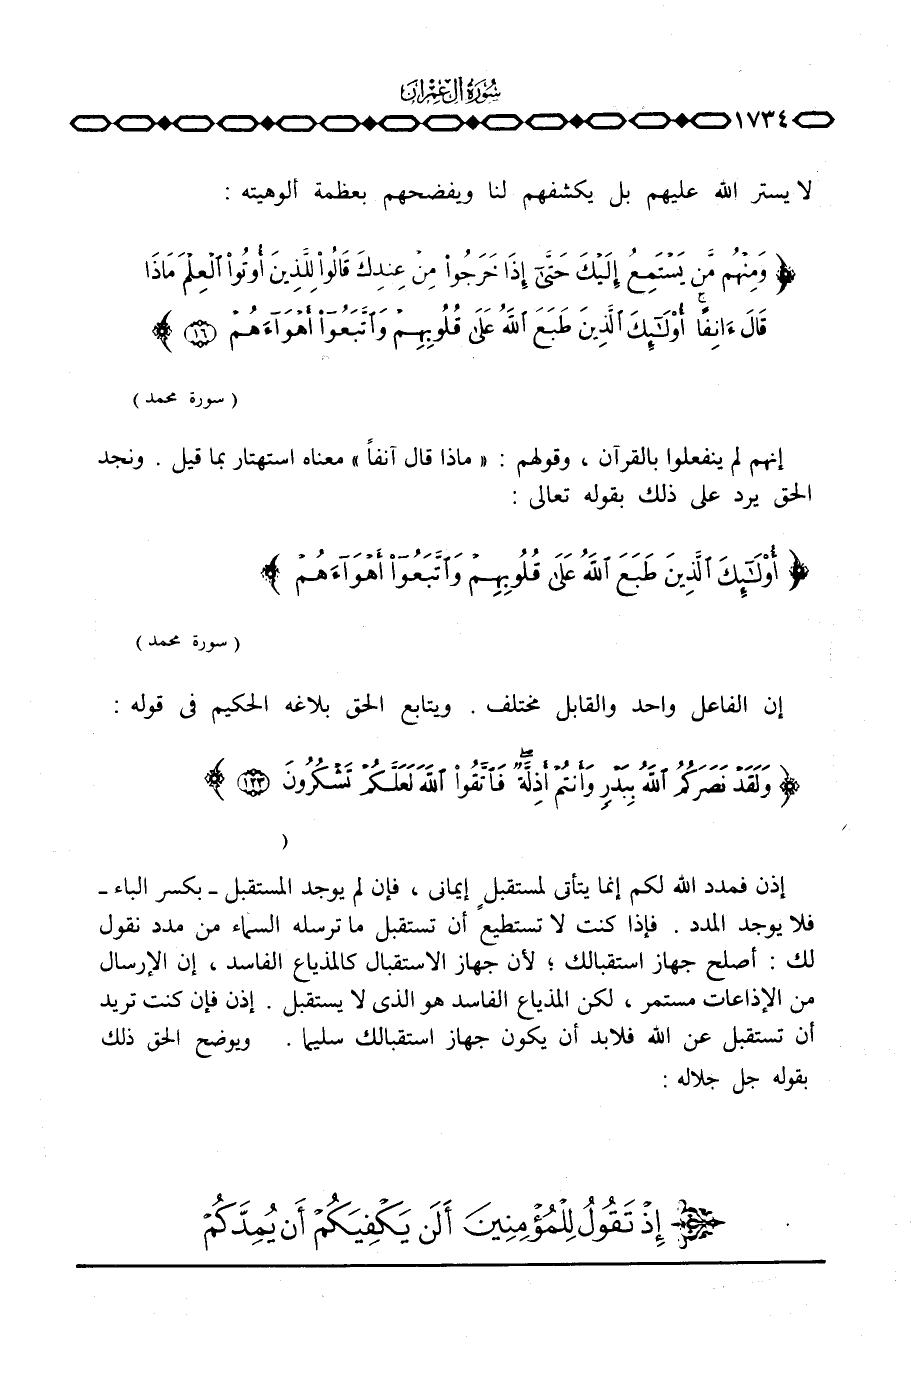 سُورَةُ آلِ عِمْرَانَ
١٧٣٤
لا يستر الله عليهم بل يكشفهم لنا ويفضحهم بعظمة ألوهيته :
﴿ وَمِنْهُم مَّن يَسْتَمِعُ إِلَيْكَ حَتَّىٰٓ إِذَا خَرَجُوا۟ مِنْ عِندِكَ قَالُوا۟ لِلَّذِينَ أُوتُوا۟ ٱلْعِلْمَ مَاذَا
قَالَ ءَانِفًا ۚ أُو۟لَٰٓئِكَ ٱلَّذِينَ طَبَعَ ٱللَّهُ عَلَىٰ قُلُوبِهِمْ وَٱتَّبَعُوٓا۟ أَهْوَآءَهُمْ ﴿١٦﴾ ﴾
( سورة محمد )
إنهم لم ينفعلوا بالقرآن ، وقولهم : « ماذا قال آنفاً » معناه استهتار بما قيل . ونجد
الحق يرد على ذلك بقوله تعالى :
﴿ أُو۟لَٰٓئِكَ ٱلَّذِينَ طَبَعَ ٱللَّهُ عَلَىٰ قُلُوبِهِمْ وَٱتَّبَعُوٓا۟ أَهْوَآءَهُمْ ﴾
( سورة محمد )
إن الفاعل واحد والقابل مختلف . ويتابع الحق بلاغه الحكيم فى قوله :
﴿ وَلَقَدْ نَصَرَكُمُ ٱللَّهُ بِبَدْرٍ وَأَنتُمْ أَذِلَّةٌ ۖ فَٱتَّقُوا۟ ٱللَّهَ لَعَلَّكُمْ تَشْكُرُونَ ﴿١٢٣﴾ ﴾
(
إذن فمدد الله لكم إنما يتأتى لمستقبلٍ إيمانى ، فإن لم يوجد المستقبل ـ بكسر الباء ـ
فلا يوجد المدد . فإذا كنت لا تستطيع أن تستقبل ما ترسله السماء من مدد نقول
لك : أصلح جهاز استقبالك ؛ لأن جهاز الاستقبال كالمذياع الفاسد ، إن الإرسال
من الإذاعات مستمر ، لكن المذياع الفاسد هو الذى لا يستقبل . إذن فإن كنت تريد
أن تستقبل عن الله فلابد أن يكون جهاز استقبالك سليما . ويوضح الحق ذلك
بقوله جل جلاله :
إِذْ تَقُولُ لِلْمُؤْمِنِينَ أَلَن يَكْفِيَكُمْ أَن يُمِدَّكُمْ